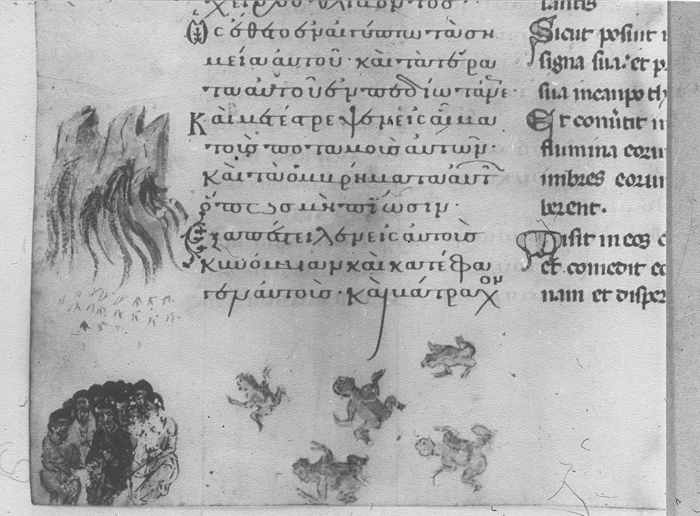 Ὃς ἔθετο ἐν αἰγύπτω τὰ ση
μεῖα αὐτοῦ· καὶ τὰ τέρα
τα αὐτοῦ ἐν πεδίω τάνε·
Καὶ μετέστρεψεν εἰς αἷμα
τοὺς ποταμοὺς αὐτῶν·
καὶ τὰ ὀμβρήματα αὐτ
ὅπως μὴ πίωσιν·
Ἐξαπέστειλεν εἰς αὐτοὺς
κυνόμυιαν καὶ κατέφα
γεν αὐτοὺς· καὶ βάτραχον
lantis
Sicut posuit
signa sua: et p
sua in campo th
Et conũtit in
flumina eoru
imbres eorum
berent.
Misit in eos c
et comedit eo
nam et disper